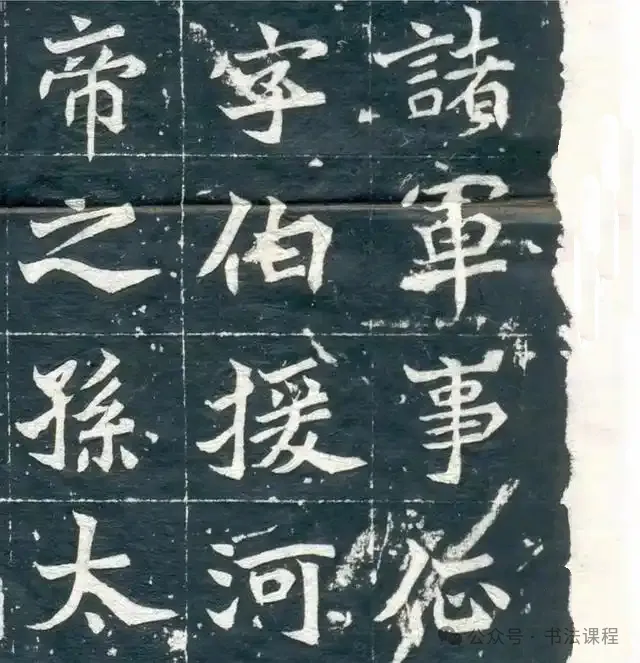 諸軍事
字伯援河
帝之孫太
公众号 · 书法课程